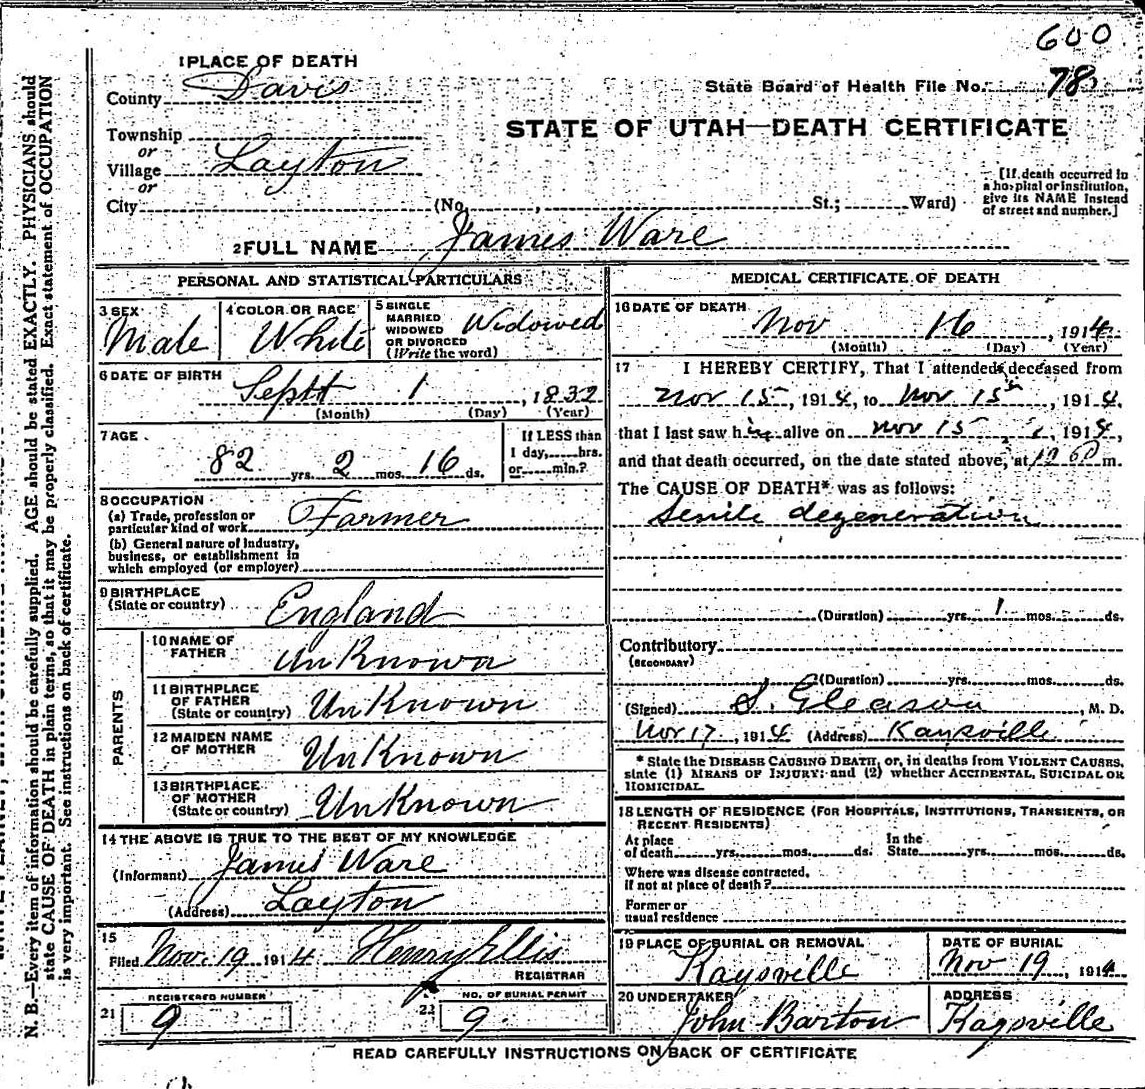 600
1 PLACE OF DEATH
County Davis
State Board of Health File No. 78
Township
or
Village Layton
or
City (No. , St.; Ward)
STATE OF UTAH—DEATH CERTIFICATE
[If death occurred in
a hospital or institution,
give its NAME instead
of street and number.]
2 FULL NAME James Ware
PERSONAL AND STATISTICAL PARTICULARS
3 SEX
Male
4 COLOR OR RACE
White
5 SINGLE
MARRIED
WIDOWED
OR DIVORCED
(Write the word)
Widowed
6 DATE OF BIRTH
Sept 1, 1832
(Month) (Day) (Year)
7 AGE
82 yrs. 2 mos. 16 ds.
If LESS than
1 day, hrs.
or min.?
8 OCCUPATION
(a) Trade, profession or
particular kind of work Farmer
(b) General nature of Industry,
business, or establishment in
which employed (or employer)
9 BIRTHPLACE
(State or country) England
PARENTS
10 NAME OF
FATHER UnKnown
11 BIRTHPLACE
OF FATHER
(State or country) UnKnown
12 MAIDEN NAME
OF MOTHER UnKnown
13 BIRTHPLACE
OF MOTHER
(State or country) UnKnown
14 THE ABOVE IS TRUE TO THE BEST OF MY KNOWLEDGE
(Informant) James Ware
(Address) Layton
15
Filed Nov. 19 1914 Henry Ellis
REGISTRAR
REGISTERED NUMBER
21 9
NO. OF BURIAL PERMIT
22 9
MEDICAL CERTIFICATE OF DEATH
16 DATE OF DEATH
Nov 16, 1914
(Month) (Day) (Year)
17 I HEREBY CERTIFY, That I attended deceased from
Nov 15, 1914, to Nov 15th, 1914,
that I last saw him alive on Nov 15, 1914,
and that death occurred, on the date stated above, at m.
The CAUSE OF DEATH* was as follows:
Senile degeneration
(Duration) yrs. 1 mos. ds.
Contributory
(SECONDARY)
(Duration) yrs. mos. ds.
(Signed) S. Gleason, M. D.
Nov 17, 1914 (Address) Kaysville
* State the DISEASE CAUSING DEATH, or, in deaths from VIOLENT CAUSES,
state (1) MEANS OF INJURY; and (2) whether ACCIDENTAL, SUICIDAL OR
HOMICIDAL.
18 LENGTH OF RESIDENCE (FOR HOSPITALS, INSTITUTIONS, TRANSIENTS, OR
RECENT RESIDENTS)
At place
of death yrs. mos. ds.
In the
State yrs. mos. ds.
Where was disease contracted,
if not at place of death?
Former or
usual residence
19 PLACE OF BURIAL OR REMOVAL
Kaysville
DATE OF BURIAL
Nov 19, 1914
20 UNDERTAKER
John Barton
ADDRESS
Kaysville
READ CAREFULLY INSTRUCTIONS ON BACK OF CERTIFICATE
N. B.—Every item of information should be carefully supplied. AGE should be stated EXACTLY. PHYSICIANS should
state CAUSE OF DEATH in plain terms, so that it may be properly classified. Exact statement of OCCUPATION
is very important. See instructions on back of certificate.